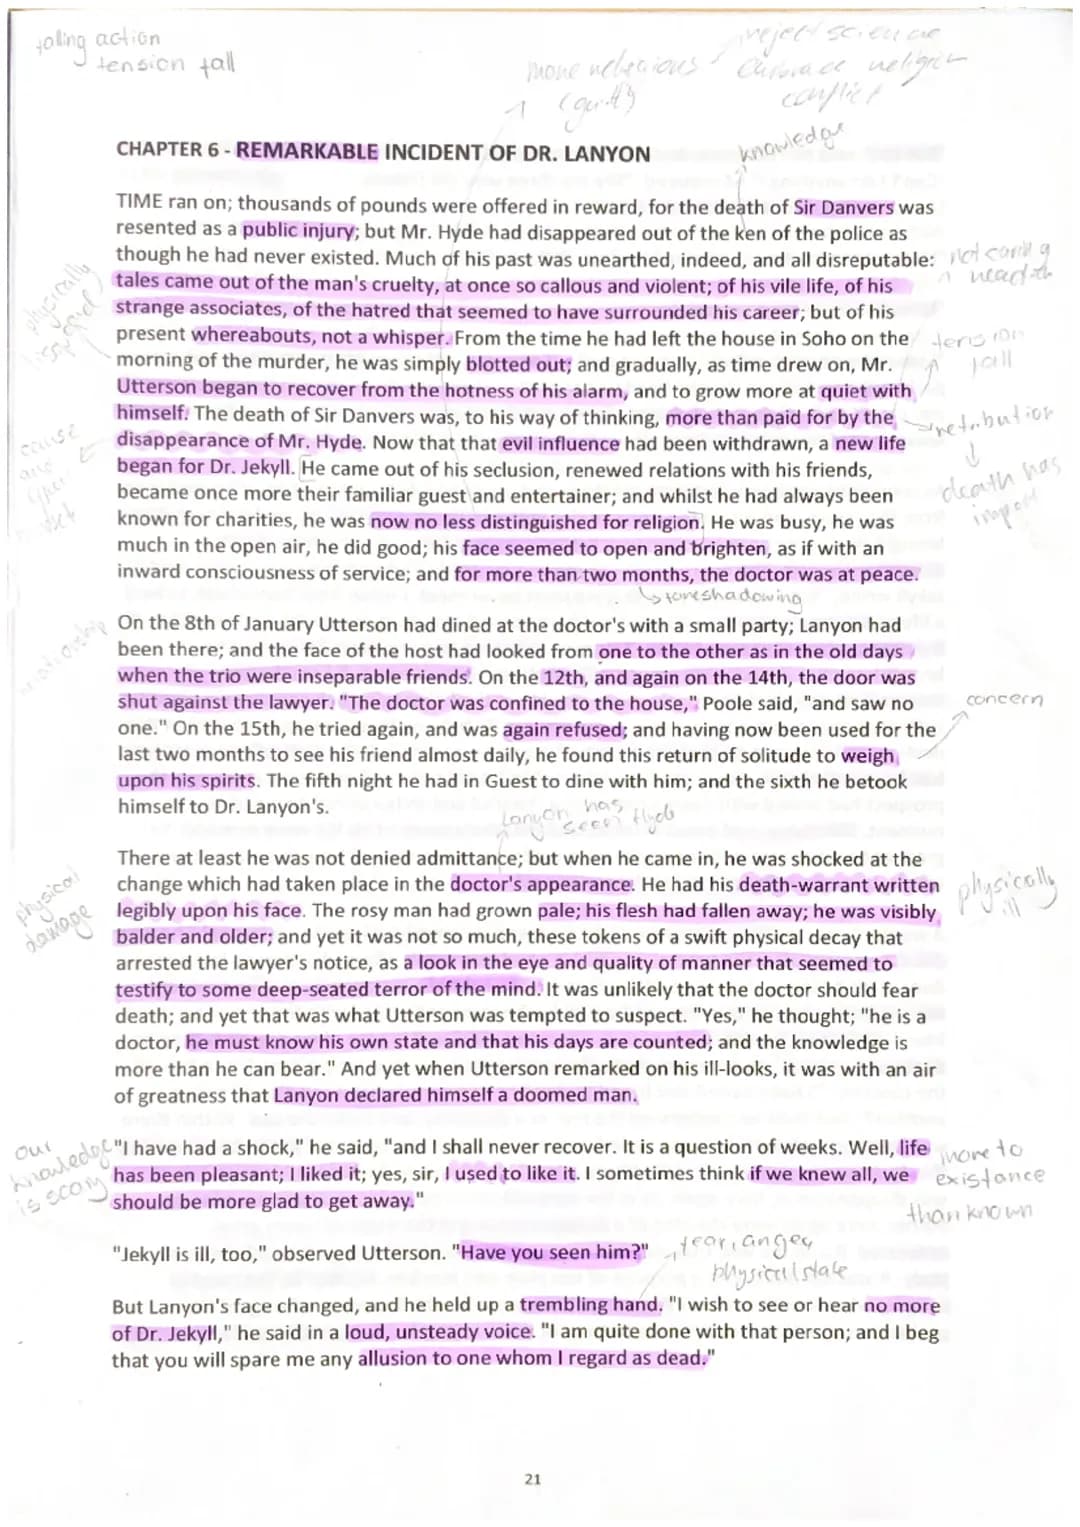 falling action
tension fall
more religious
(guilt)
reject science
embrace religion
conflict
CHAPTER 6 - REMARKABLE INCIDENT OF DR. LANYON
knowledge
TIME ran on; thousands of pounds were offered in reward, for the death of Sir Danvers was
resented as a public injury; but Mr. Hyde had disappeared out of the ken of the police as
though he had never existed. Much of his past was unearthed, indeed, and all disreputable:
tales came out of the man's cruelty, at once so callous and violent; of his vile life, of his
strange associates, of the hatred that seemed to have surrounded his career; but of his
present whereabouts, not a whisper. From the time he had left the house in Soho on the
tension
fall
morning of the murder, he was simply blotted out; and gradually, as time drew on, Mr.
Utterson began to recover from the hotness of his alarm, and to grow more at quiet with
himself. The death of Sir Danvers was, to his way of thinking, more than paid for by the
retribution
disappearance of Mr. Hyde. Now that that evil influence had been withdrawn, a new life
began for Dr. Jekyll. He came out of his seclusion, renewed relations with his friends,
cause
and
death has
became once more their familiar guest and entertainer; and whilst he had always been
known for charities, he was now no less distinguished for religion. He was busy, he was
much in the open air, he did good; his face seemed to open and brighten, as if with an
inward consciousness of service; and for more than two months, the doctor was at peace.
foreshadowing
On the 8th of January Utterson had dined at the doctor's with a small party; Lanyon had
relationship
been there; and the face of the host had looked from one to the other as in the old days
when the trio were inseparable friends. On the 12th, and again on the 14th, the door was
shut against the lawyer. "The doctor was confined to the house," Poole said, "and saw no
concern
one." On the 15th, he tried again, and was again refused; and having now been used for the
last two months to see his friend almost daily, he found this return of solitude to weigh
upon his spirits. The fifth night he had in Guest to dine with him; and the sixth he betook
himself to Dr. Lanyon's.
Lanyon has
seen Hyde
There at least he was not denied admittance; but when he came in, he was shocked at the
change which had taken place in the doctor's appearance. He had his death-warrant written
physical
damage
physically
ill
legibly upon his face. The rosy man had grown pale; his flesh had fallen away; he was visibly
balder and older; and yet it was not so much, these tokens of a swift physical decay that
arrested the lawyer's notice, as a look in the eye and quality of manner that seemed to
testify to some deep-seated terror of the mind. It was unlikely that the doctor should fear
death; and yet that was what Utterson was tempted to suspect. "Yes," he thought; "he is a
doctor, he must know his own state and that his days are counted; and the knowledge is
more than he can bear." And yet when Utterson remarked on his ill-looks, it was with an air
of greatness that Lanyon declared himself a doomed man.
our
knowledge
"I have had a shock," he said, "and I shall never recover. It is a question of weeks. Well, life
has been pleasant; I liked it; yes, sir, I used to like it. I sometimes think if we knew all, we
should be more glad to get away."
more to
existance
than known
"Jekyll is ill, too," observed Utterson. "Have you seen him?"
fear, anger
physical state
But Lanyon's face changed, and he held up a trembling hand. "I wish to see or hear no more
of Dr. Jekyll," he said in a loud, unsteady voice. "I am quite done with that person; and I beg
that you will spare me any allusion to one whom I regard as dead."
21